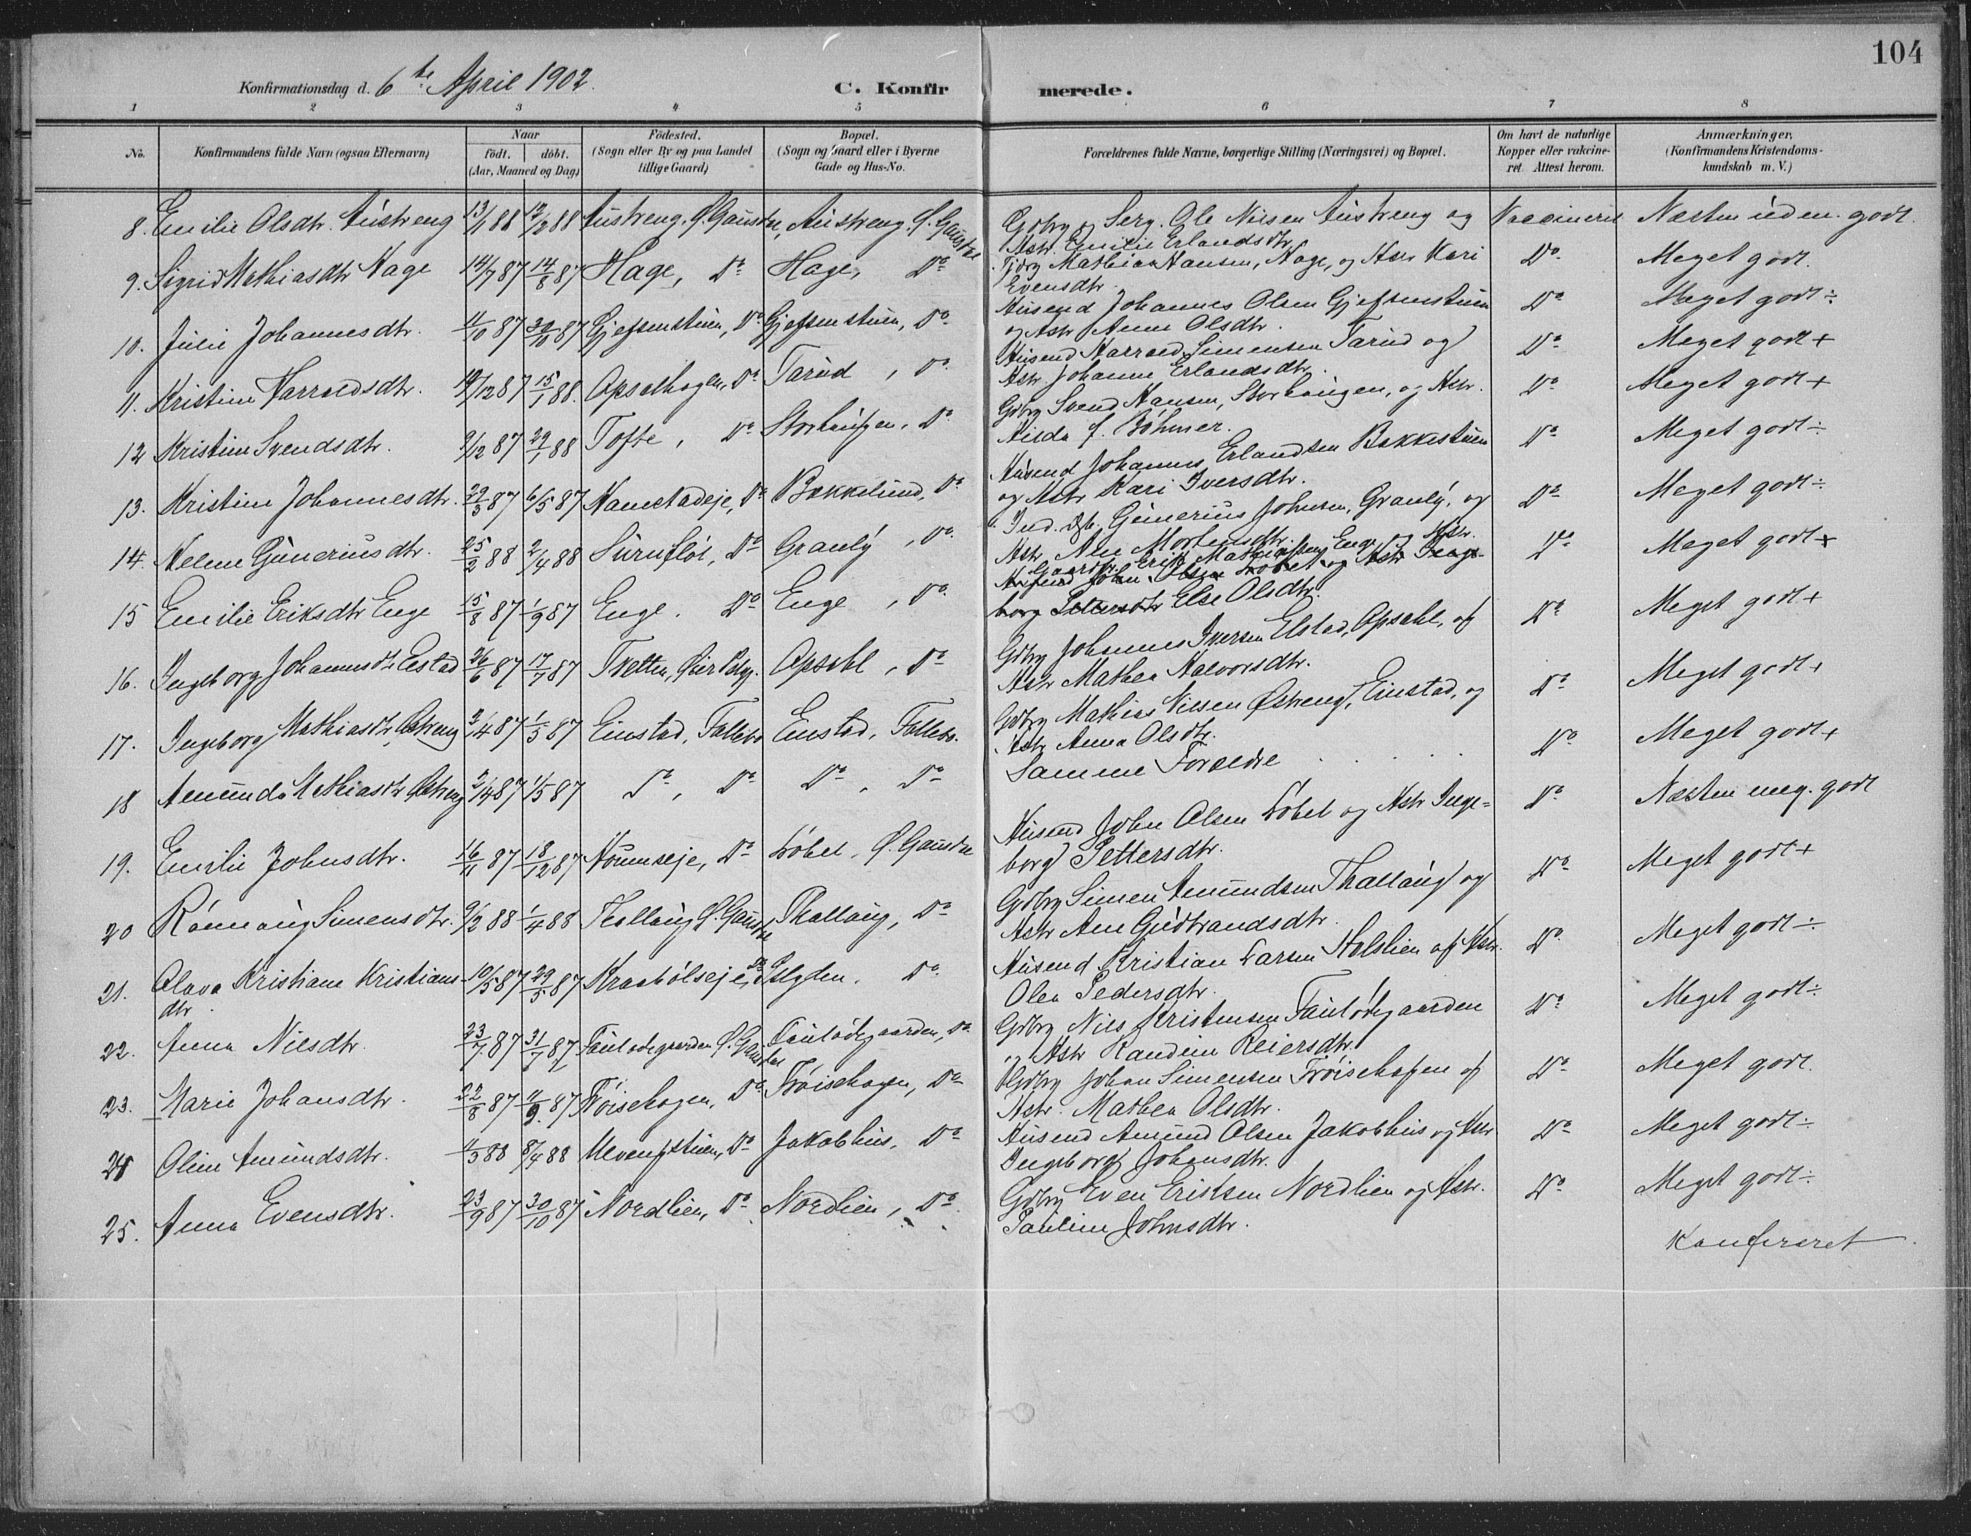 104
Konfirmationsdag d. 6te April 1902.
C. Konfirmerede.
1 2 3 4 5 6 7 8
No. Konfirmandens fulde Navn (ogsaa Efternavn) Naar födt. döbt. (Aar, Maaned og Dag) Födested. (Sogn eller By og paa Landet tillige Gaard) Bopæl. (Sogn og Gaard eller i Byerne Gade og Hus-No. Forældrenes fulde Navne, borgerlige Stilling (Næringsvei) og Bopæl. Om havt de naturlige Kopper eller vakcineret. Attest herom. Anmærkninger. (Konfirmandens Kristendomskundskab m. V.)
8. Emilie Olsdtr. Austreng 13/1 88 12/2 88 Austreng, Ø. Gausdal, Austreng, Ø. Gausdal Gdbrg. og Serg. Ole Nilsen Austreng og Vaccineret Næsten uden. godt.
Hstr. Emilie Erlandsdtr.
9. Sigrid Mathiasdtr Hage 14/7 87 14/8 87 Hage, Do Hage, Do Mathias Hansen, Hage, og Hstr Kari Evensdtr. Do Meget godt.
10. Julie Johannesdtr. 11/10 87 30/10 87 Gjefsenstuen, Do Gjefsenstuen, Do Husmd Johannes Olsen Gjefsenstuen Do Meget godt ÷
og Hstr Anne Olsdtr.
11. Kristine Harraldsdtr. 19/12 87 15/1 88. Opsalhagen, Do Tarud, Do Husmd Harrald Simensen Tarud og Do Meget godt +
Hstr. Johanne Erlandsdtr.
12 Kristine Svendsdtr. 9/12 87 29/1 88 Tofte, Do Storhaugen, Do Gdbrg Svend Hansen, Storhaugen, og Hstr. Do Meget godt +
Hilda f. Bøhmer.
13. Kristine Johannesdtr. 29/3 87 6/5 87 Hamstadeje, Do Bakkelund, Do Husmd Johannes Erlandsen Bakkestuen Do Meget godt ÷
og Hstr Kari Iversdtr.
14. Helene Guneriusdtr. 25/2 88 2/4 88 Surufløt, Do Granly, Do Gunerius Johnsen, Granly, og Do Meget godt ÷
Hstr. Ane Mortensdtr.
15 Emilie Eriksdtr Enge 15/8 87 1/9 87 Enge. Do Enge, Do Gaardbr. Erik Mathiassen Enge og Hstr. Else Olsdtr. Do Meget godt +
16. Ingeborg Johannesdtr Elstad 26/6 87 17/7 87 Tretten, Øier Opsahl, Do Gdbrg Johannes Iversen Elstad, Opsahl, af Do Meget godt +
Hstr Mathea Halvorsdtr.
17. Ingeborg Mathiasdtr Østreng 3/4 87 1/5 87 Einstad, Follebo Einstad, Follebo. Gdbrg Mathias Nilsen Østreng, Einstad, og Do Meget godt +
Hstr Anna Olsdtr.
18 Amunda Mathiasdtr Østreng 3/4 87 1/5 87 Do, Do Do, Do Samme Forældre Do Meget godt +
19. Emilie Johnsdtr. 16/11 87 18/12 87 Do Løbet, Ø. Gausdal Husmd John Olsen Løbet og Hstr Inge= Do Næsten meg. godt
borg Pettersdtr.
20 Rønnaug Simensdtr. 9/2 88 1/4 88 Thallaug Ø. Gausdal Thallaug, Do Gdbrg Simen Amundsen Thallaug og Do Meget godt +
Hstr Ane Gudbrandsdtr.
21. Olava Kristiane Kristians= 10/5 87 29/5 87 Kraabølseje, Do Do Husmd Kristian Larsen Holslien af Hstr. Do Meget godt ÷
dtr. Olea Pedersdtr.
22. Anna Nilsdtr. 23/7 87 31/7 87 Pautødegaarden Ø. Gausdal Pautødegaarden, Do Gdbrg Nils Kristensen Pautødegaarden Do Meget godt ÷
og Hstr Randine Reiersdtr
23. Marie Johansdtr. 22/8 87 11/9 87 Trøisehagen, Do Trøisehagen, Do Gdbrg Johan Simensen Trøisehagen af Do Meget godt.
Hstr. Mathea Olsdtr.
24 Oline Amundsdtr. 11/3 88 8/4 88 Do Jakobhus, Do Husmd Amund Olsen Jakobhus og Hstr Do Meget godt ÷
Ingeborg Johansdtr.
25. Anna Evensdtr. 23/9 87 30/10 87 Nordlien, Do Nordlien, Do Gdbrg Even Eriksen Nordlien og Hstr. Do Meget godt ÷
Pauline Johnsdtr.
Konfereret